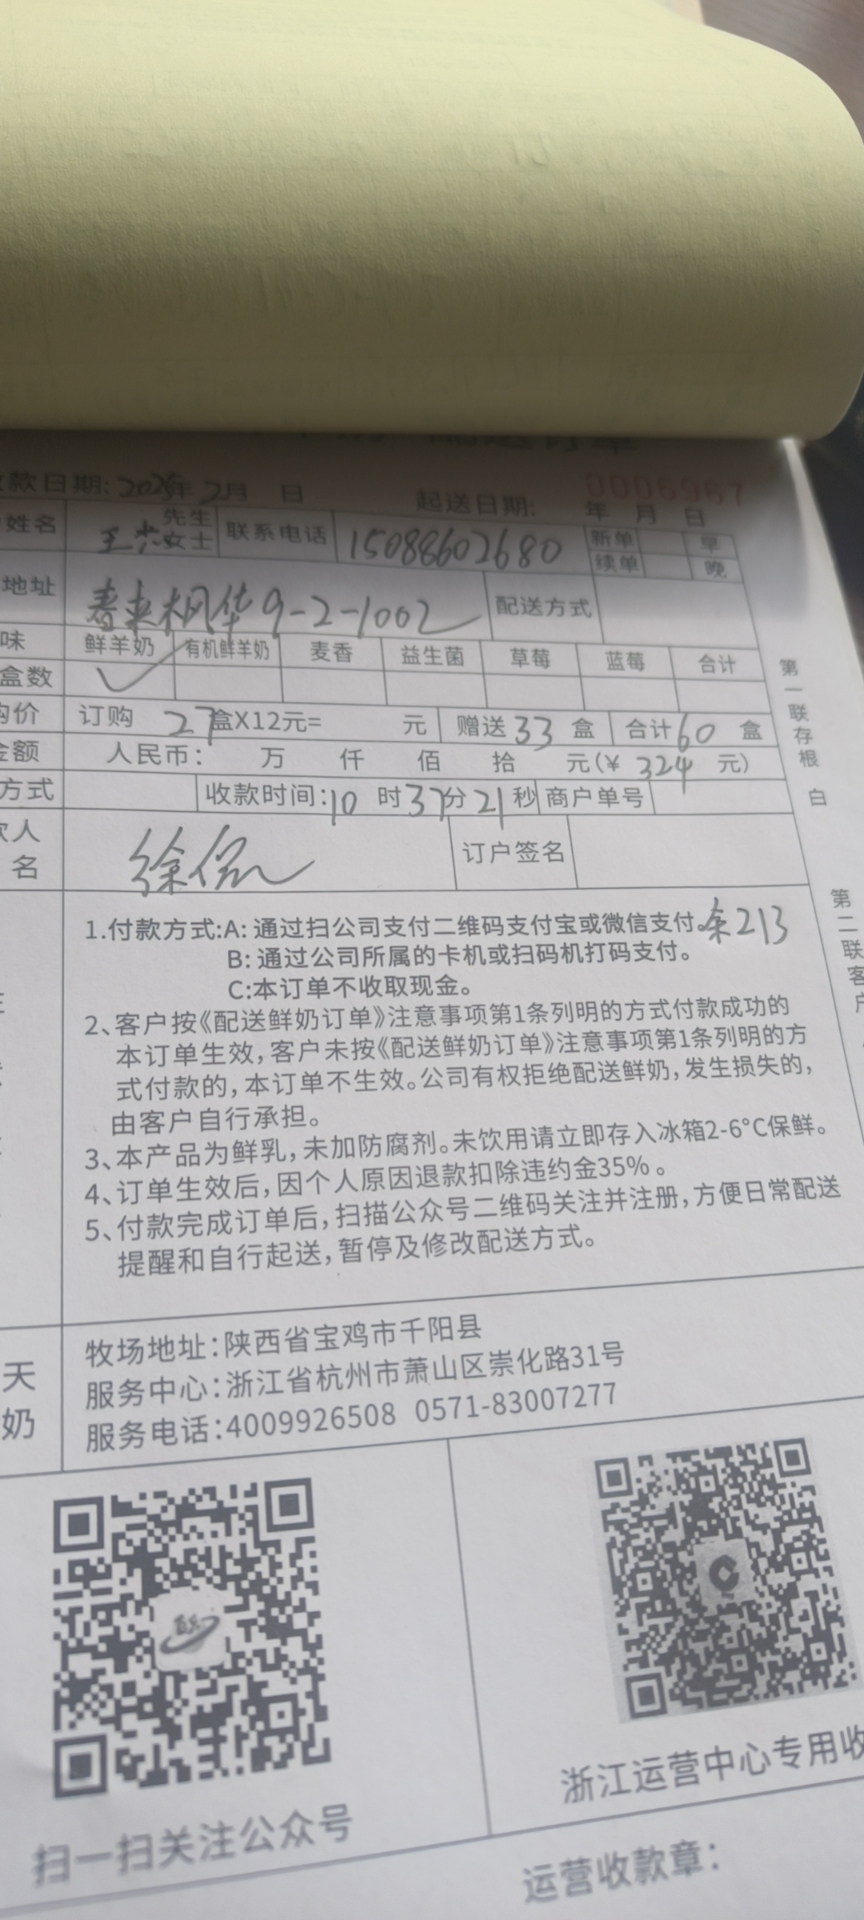 款日期: 年2月 日 起送日期: 年 月 日
0006967
姓名 王 先生 女士 联系电话 15088602680 新单 早
续单 晚
地址 春来枫华9-2-1002 配送方式
味 鲜羊奶 有机鲜羊奶 麦香 益生菌 草莓 蓝莓 合计
盒数 ✓
购价 订购 27盒X12元= 元 赠送33盒 合计60盒
金额 人民币: 万 仟 佰 拾 元(¥ 324 元)
方式 收款时间:10时37分21秒 商户单号
款人
名 徐 订户签名
第一联存根 白
第二联客户
1.付款方式:A: 通过扫公司支付二维码支付宝或微信支付。余213
B: 通过公司所属的卡机或扫码机打码支付。
C:本订单不收取现金。
2、客户按《配送鲜奶订单》注意事项第1条列明的方式付款成功的
本订单生效，客户未按《配送鲜奶订单》注意事项第1条列明的方
式付款的，本订单不生效。公司有权拒绝配送鲜奶，发生损失的，
由客户自行承担。
3、本产品为鲜乳，未加防腐剂。未饮用请立即存入冰箱2-6°C保鲜。
4、订单生效后，因个人原因退款扣除违约金35%。
5、付款完成订单后，扫描公众号二维码关注并注册，方便日常配送
提醒和自行起送，暂停及修改配送方式。
天
奶
牧场地址:陕西省宝鸡市千阳县
服务中心:浙江省杭州市萧山区崇化路31号
服务电话:4009926508 0571-83007277
扫一扫关注公众号
浙江运营中心专用收
运营收款章: